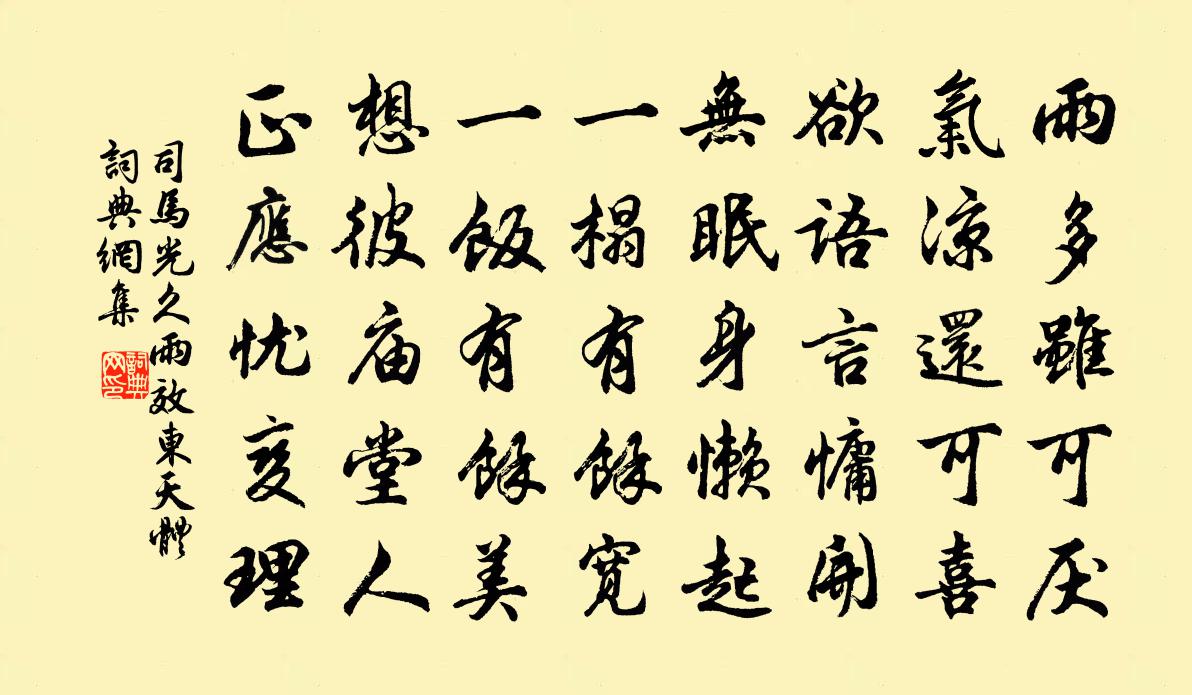 雨多雖可厌
氣涼還可喜
欲語言慵開
無眠身懒起
一榻有餘寬
一飯有餘美
想彼庙堂人
正應忧变理
司馬光久雨效東天體
詞典網集
詞典网印